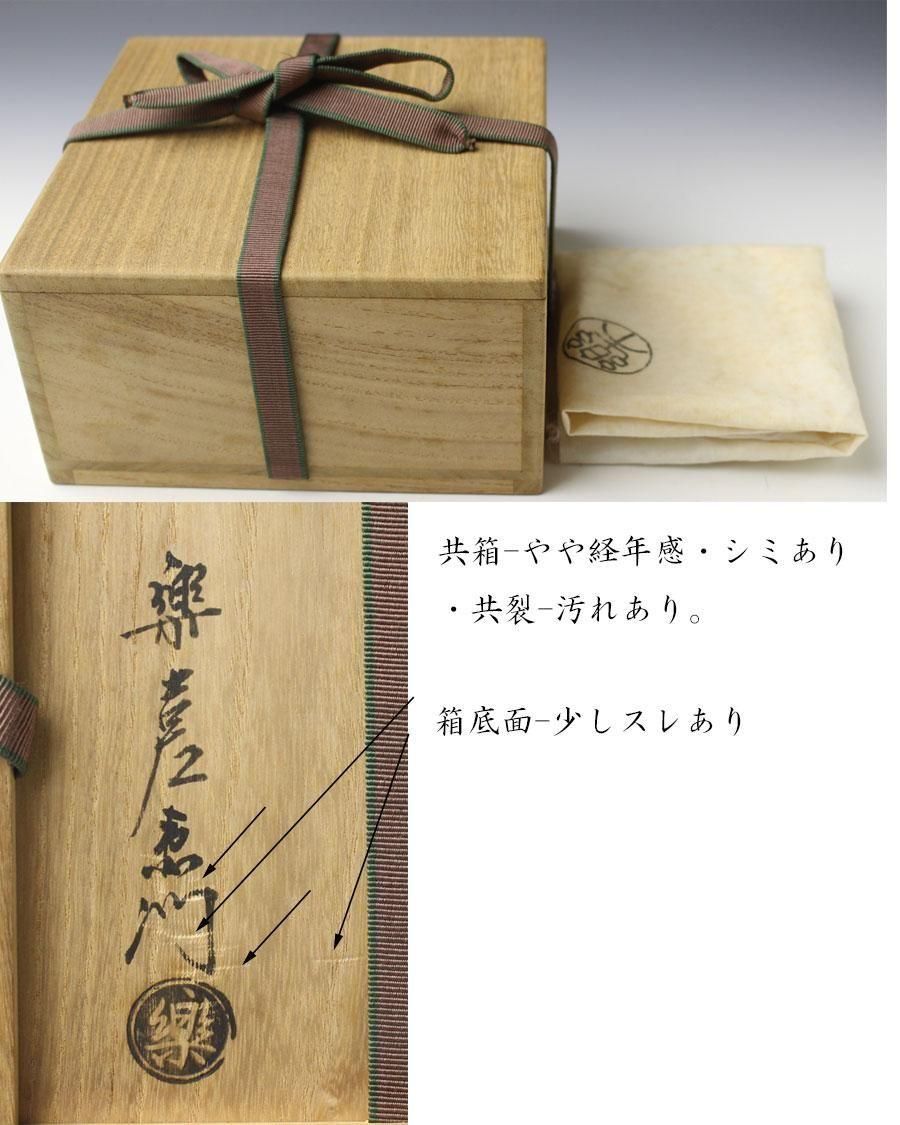 共箱-やや経年感・シミあり
・共裂-汚れあり。
箱底面-少しスレあり
樂
吉左衛門
樂